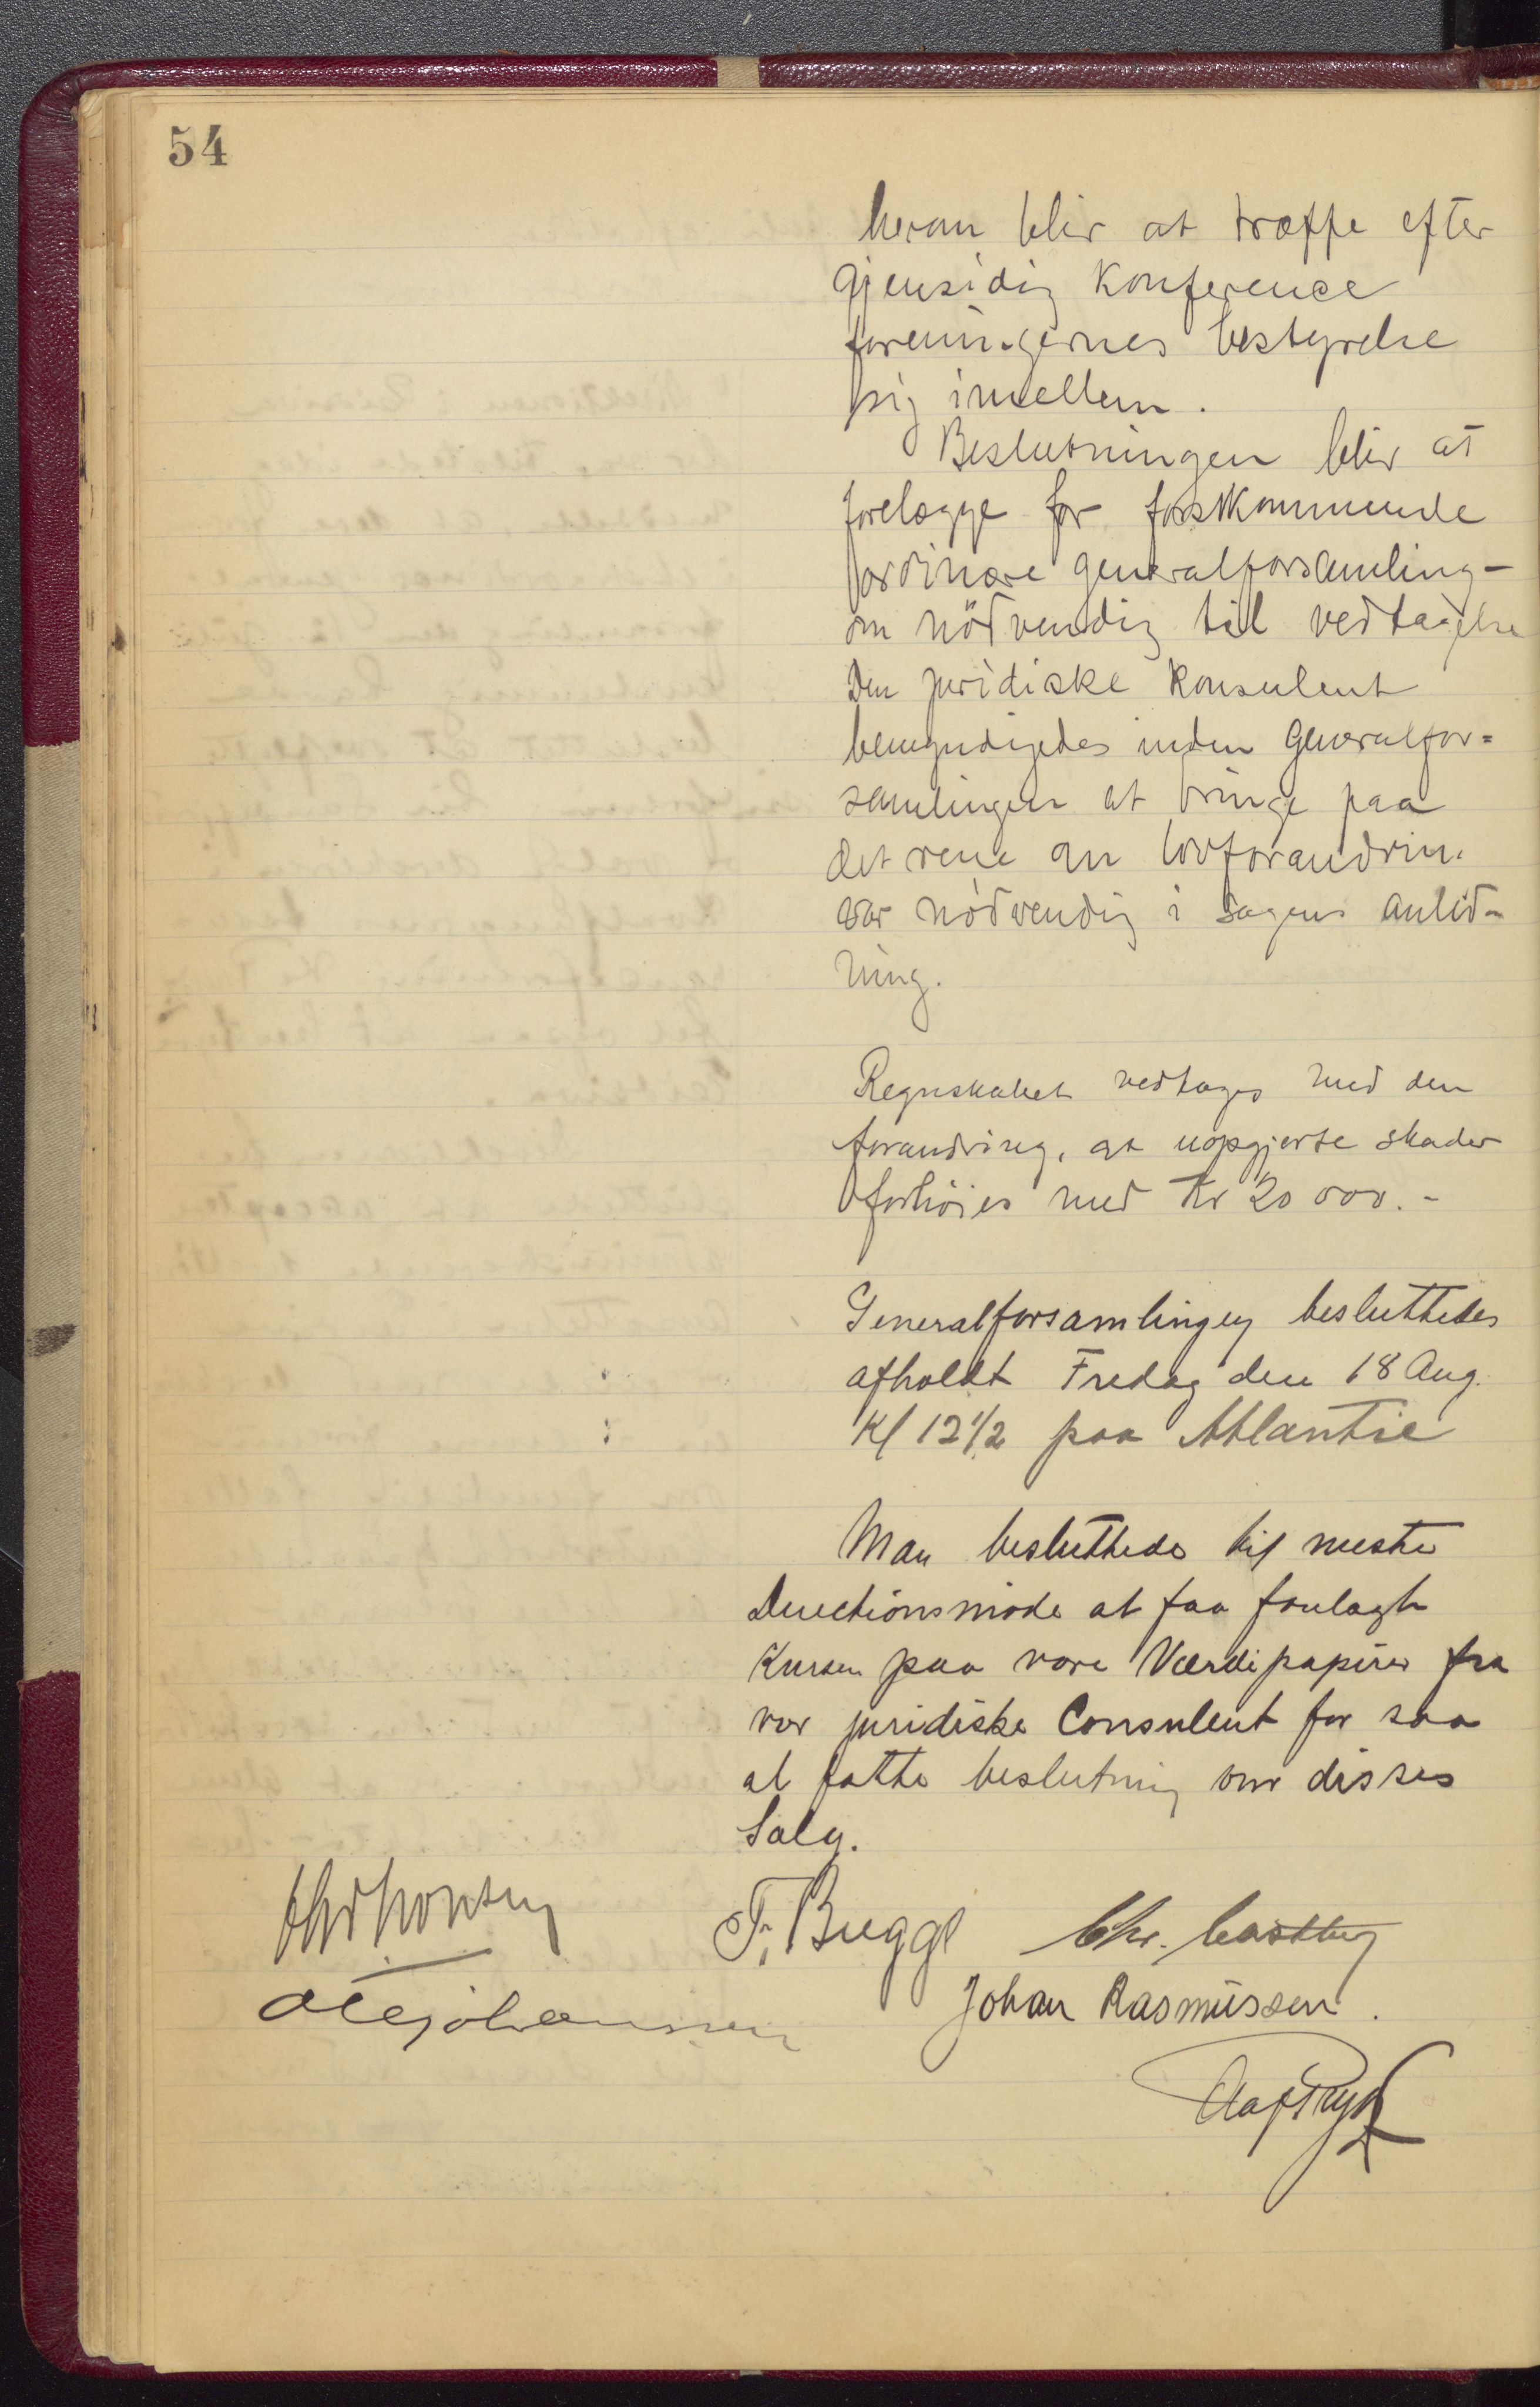 54
herom blir at træffe efter
gjensidig Konference
foreningernes bestyrelse
sig imellem.
Beslutningen blir at
forelægge for førstkommende
ordinære generalforsamling -
om nödvendig til vedtagelse
Den juridiske Konsulent
bemyndigedes inden Generalfor=
samlingen at bringe paa
det rene om lovforandrin.
var nödvendig i sagens anled-
ning.
Regnskabet vedtages med den
forandring, at uopgjorte skader
forhöies med Kr 20 000.-
Generalforsamlingen besluttedes
afholdt Fredag den 18 Aug.
Kl 12 1/2 paa Atlantic
Man besluttede til neste
Directionsmöde at faa forelagt
Kursen paa vore Værdipapirer fra
vor juridiske Consulent for saa
at fatte beslutning om disses
Salg.
F. Bugge Chr. Castberg
Ole Johannessen Johan Rasmussen.